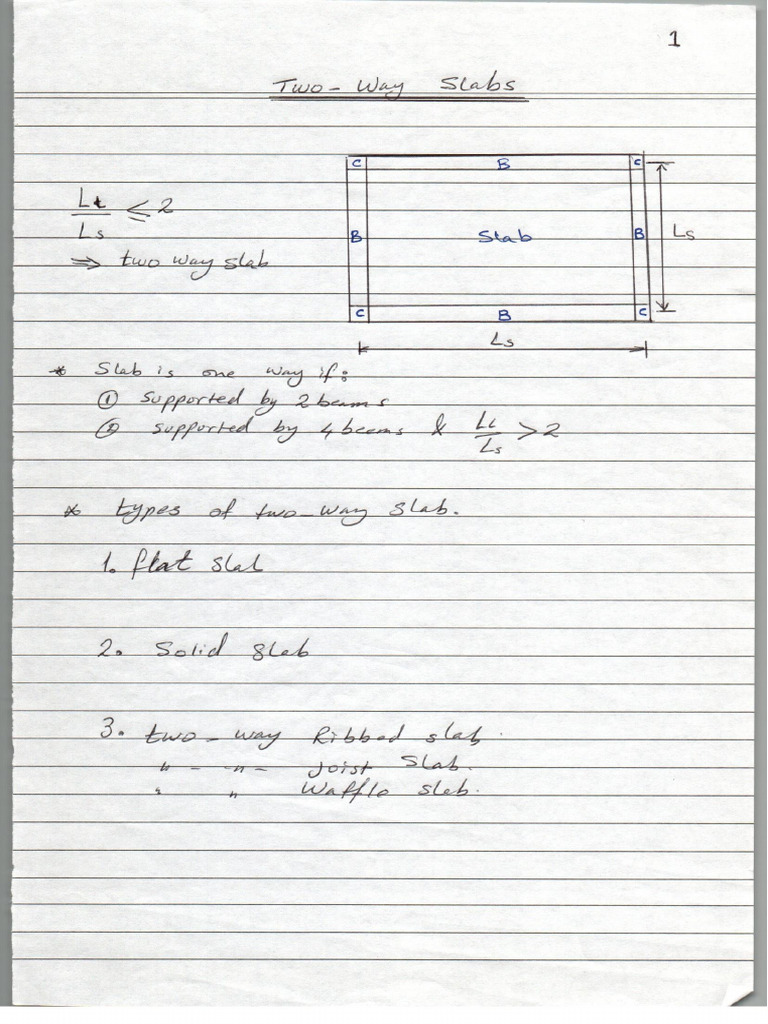 1
Two-Way Slabs
C B C
Lt/Ls ≤ 2
B Slab B Ls
⇒ two way slab
C B C
Ls
* Slab is one way if:
① supported by 2 beams
② supported by 4 beams & LL/Ls > 2
* types of two-way slab.
1. flat slab
2. Solid slab
3. two-way Ribbed slab.
" - " - Joist Slab.
" " Waffle slab.